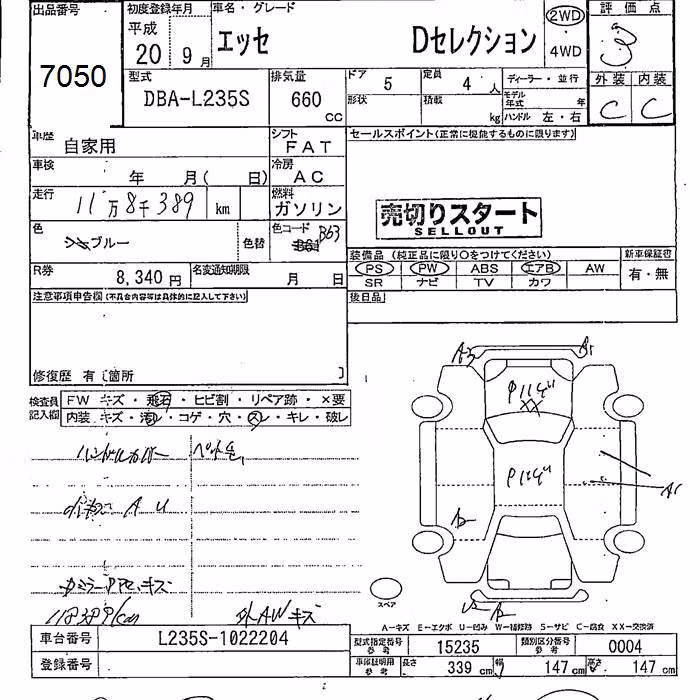 出品番号
7050
初度登録年月
平成
20 9月
車名・グレード
エッセ Dセレクション
2WD
・
4WD
評価点
外装 内装
C C
型式
DBA-L235S
排気量
660 cc
ドア 5
定員 4 人
形状
積載 kg
ディーラー・並行
モデル年式 年
ハンドル 左・右
車歴
自家用
シフト
FAT
車検
年 月( 日)
冷房
AC
走行
11万8千389 km
燃料
ガソリン
色
ブルー
色替
色コード
B63
R券
8,340円
名変通知期限
月 日
セールスポイント(正常に機能するものに限ります)
売切りスタート
SELLOUT
装備品 (純正品に限り○をつけてください)
PS PW ABS エアB AW
SR ナビ TV カワ
新車保証書
有・無
後日品
注意事項申告欄(不具合内容等は具体的に記入して下さい)
修復歴 有〔箇所 〕
検査員記入欄
FW キズ・飛石・ヒビ割・リペア跡・×要
内装 キズ・汚レ・コゲ・穴・スレ・キレ・破レ
ハンドルカバー
A U
キズ
118389km
外AWキズ
A3
A1
A1
スペア
A－キズ E－エクボ U－凹み W－補修跡 S－サビ C－腐食 XX－交換済
車台番号 L235S-1022204
登録番号
型式指定番号 参考 15235
類別区分番号 参考 0004
車庫証明用 参考 長さ 339 cm 幅 147 cm 高さ 147 cm